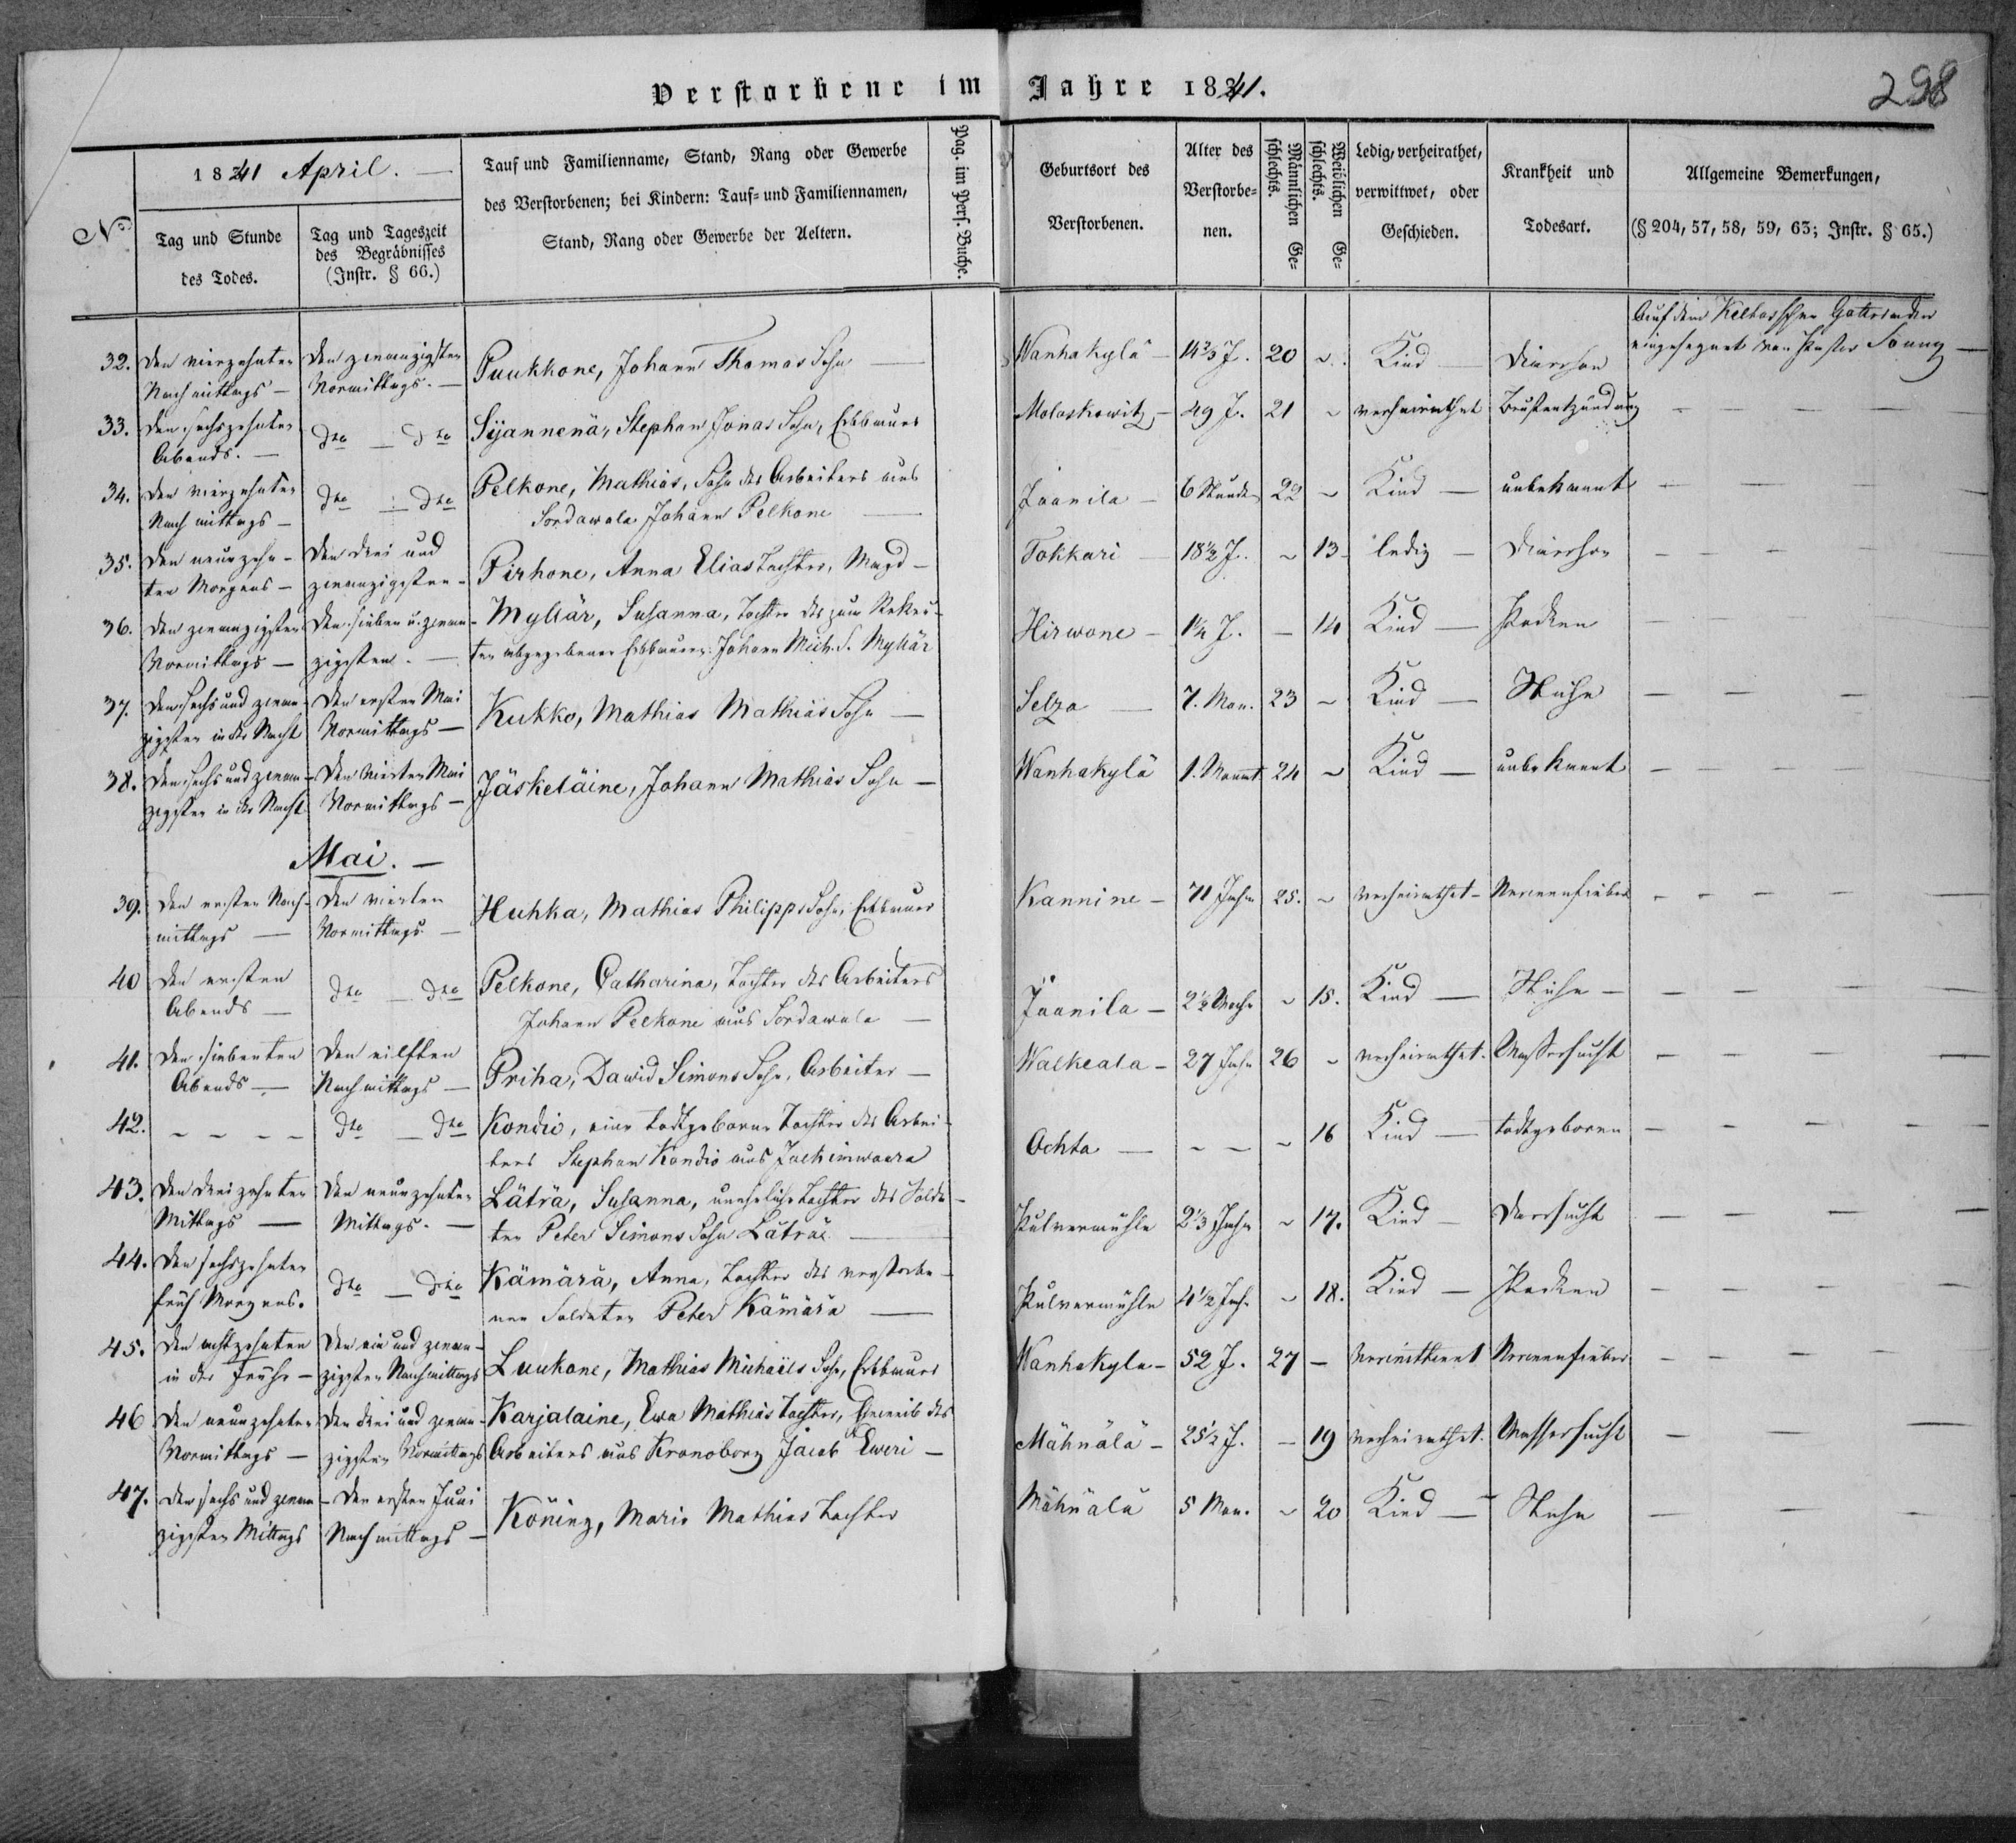 Verstorbene im Jahre 1841.
298
No
1841 April.
Tag und Stunde des Todes.
Tag und Tageszeit des Begräbnisses (Instr. § 66.)
Tauf und Familienname, Stand, Rang oder Gewerbe des Verstorbenen; bei Kindern: Tauf- und Familiennamen, Stand, Rang oder Gewerbe der Aeltern.
Pag. im Pers. Buche.
Geburtsort des Verstorbenen.
Alter des Verstorbenen.
Männlichen Geschlechts.
Weiblichen Geschlechts.
Ledig, verheirathet, verwittwet, oder Geschieden.
Krankheit und Todesart.
Allgemeine Bemerkungen, (§ 204, 57, 58, 59, 63; Instr. § 65.)
32. Den vierzehnten Nachmittags — Den zwanzigsten Vormittags. — Puukkone, Johann Thomas Sohn — Wanhakylä — 14 2/3 J. 20 ~ Kind — Diarrhoe Auf dem Kelbasschen Gottesacker eingesegnet von Pastor —
33. Den sechszehnten Abends. — Dto — Dto Sijannenä, Stephan Jonas Sohn, Erbbauer Moloskowitz — 49 J. 21 ~ verheirathet Brustentzündung — — — —
34. Den vierzehnten Nachmittags — Dto — Dto Pelkone, Mathias, Sohn des Arbeiters aus Sordawala Johann Pelkone — Jaanila — 6 Stunden 22 ~ Kind — unbekannt — — — —
35. Den neunzehnten Morgens — Den drei und zwanzigsten — Pirhone, Anna Elias Tochter, Magd — Tokkari — 18 1/2 J. ~ 13 ledig — Diarrhoe — — — —
36. Den zwanzigsten Vormittags — Den sieben u. zwanzigsten. — Mykär, Susanna, Tochter des zum Rekruten abgegebenen Erbbauern Johann Mich. S. Mykär Hirwone — 1 1/4 J. — 14 Kind — Pocken — — — —
37. Den sechs und zwanzigsten in der Nacht Den ersten Mai Vormittags — Kukko, Mathias Mathias Sohn — Selza — 7. Mon. 23 ~ Kind — — — — —
38. Den sechs und zwanzigsten in der Nacht Den vierten Mai Vormittags — Jäskeläine, Johann Mathias Sohn — Wanhakylä 1. Monat 24 ~ Kind — unbekannt — — — —
Mai. —
39. Den ersten Nachmittags — Den vierten Vormittags — Huhka, Mathias Philipps Sohn, Erbbauer Kannine — 71 Jahr 25. ~ verheirathet — Nervenfieber — — — —
40 Den ersten Abends — Dto — Dto Pelkone, Catharina, Tochter des Arbeiters Johann Pelkone aus Sordawala — Jaanila — 2 1/2 Woche ~ 15. Kind — — — — —
41. Den siebenten Abends — Den eilften Nachmittags — Priha, Dawid Simons Sohn, Arbeiter — Walkeala — 27 Jahr 26 ~ verheirathet. Wassersucht — — — —
42. — — — — Dto — Dto Kondio, eine todtgeborne Tochter des Arbeiters Stephan Kondio aus Jackimwaara Ochta — — — ~ 16 Kind — todtgeboren — — — —
43. Den dreizehnten Mittags — Den neunzehnten Mittags. — Läträ, Susanna, uneheliche Tochter des Soldaten Peter Simons Sohn Läträ — Pulvermühle 2 1/3 Jahr ~ 17. Kind — Darrsucht — — — —
44. Den sechszehnten früh Morgens. Dto — Dto Kämärä, Anna, Tochter des verstorbenen Soldaten Peter Kämärä — Pulvermühle 4 1/2 Jahr ~ 18. Kind — Pocken — — — —
45. Den achtzehnten in der Frühe — Den ein und zwanzigsten Nachmittags Luukane, Mathias Michaëls Sohn, Erbbauer Wanhakyla — 52 J. 27 — Verwittwet Nervenfieber — — — —
46 Den neunzehnten Vormittags — Den drei und zwanzigsten Vormittags Karjalaine, Ewa Mathias Tochter, Eheweib des Arbeiters aus Kronoborg Jacob Eweri — Mähnälä — 25 1/2 J. — 19 verheirathet. Wassersucht — — —
47. Den sechs und zwanzigsten Mittags Den ersten Juni Nachmittags — Köning, Maria Mathias Tochter Mähnälä 5 Mon. ~ 20 Kind — — — —